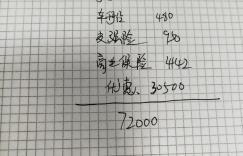 车船税 480
交强险 950
商业保险 4142
优惠 30500
72000